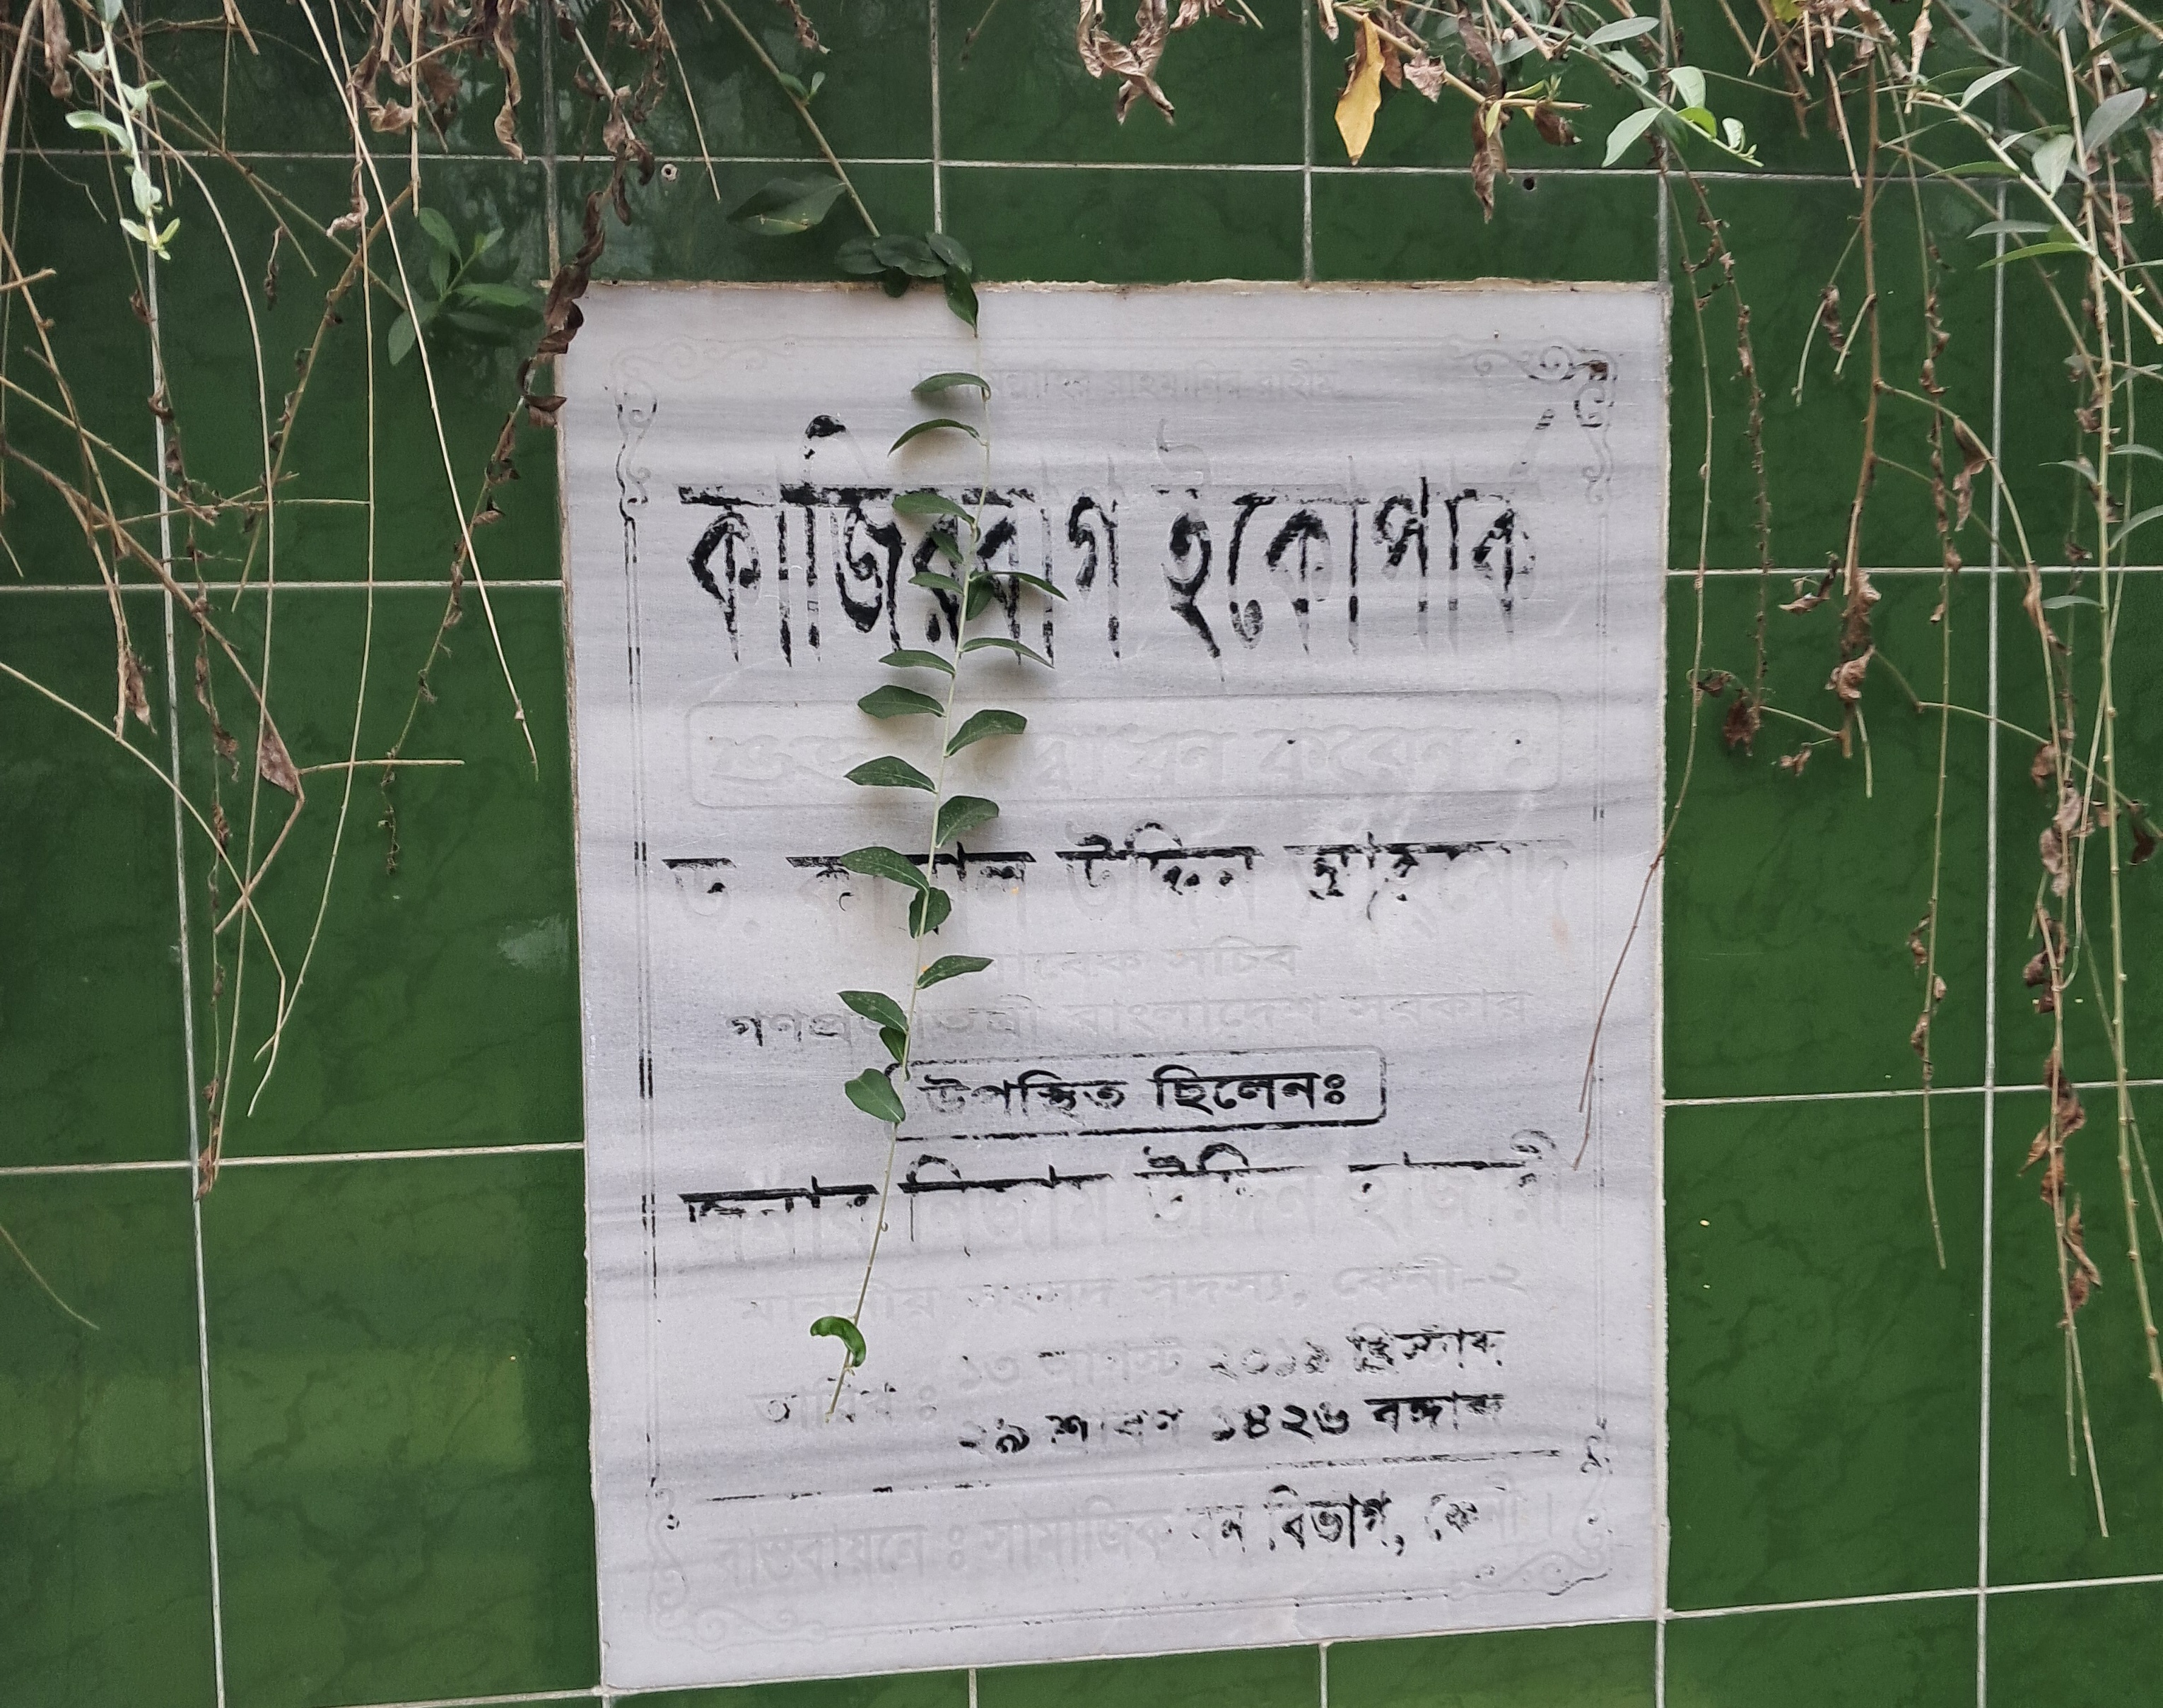 বিসমিল্লাহির রাহমানির রাহীম
কাজিরবাগ ইকোপার্ক
শুভ উদ্বোধন করেন :
ড. কামাল উদ্দিন আহমেদ
সাবেক সচিব
গণপ্রজাতন্ত্রী বাংলাদেশ সরকার
উপস্থিত ছিলেনঃ
জনাব নিজাম উদ্দিন হাজারী
মাননীয় সংসদ সদস্য, ফেনী-২
১৩ আগস্ট ২০১৯ খ্রিস্টাব্দ
তারিখ :
২৯ শ্রাবণ ১৪২৬ বঙ্গাব্দ
বাস্তবায়নে : সামাজিক বন বিভাগ, ফেনী।